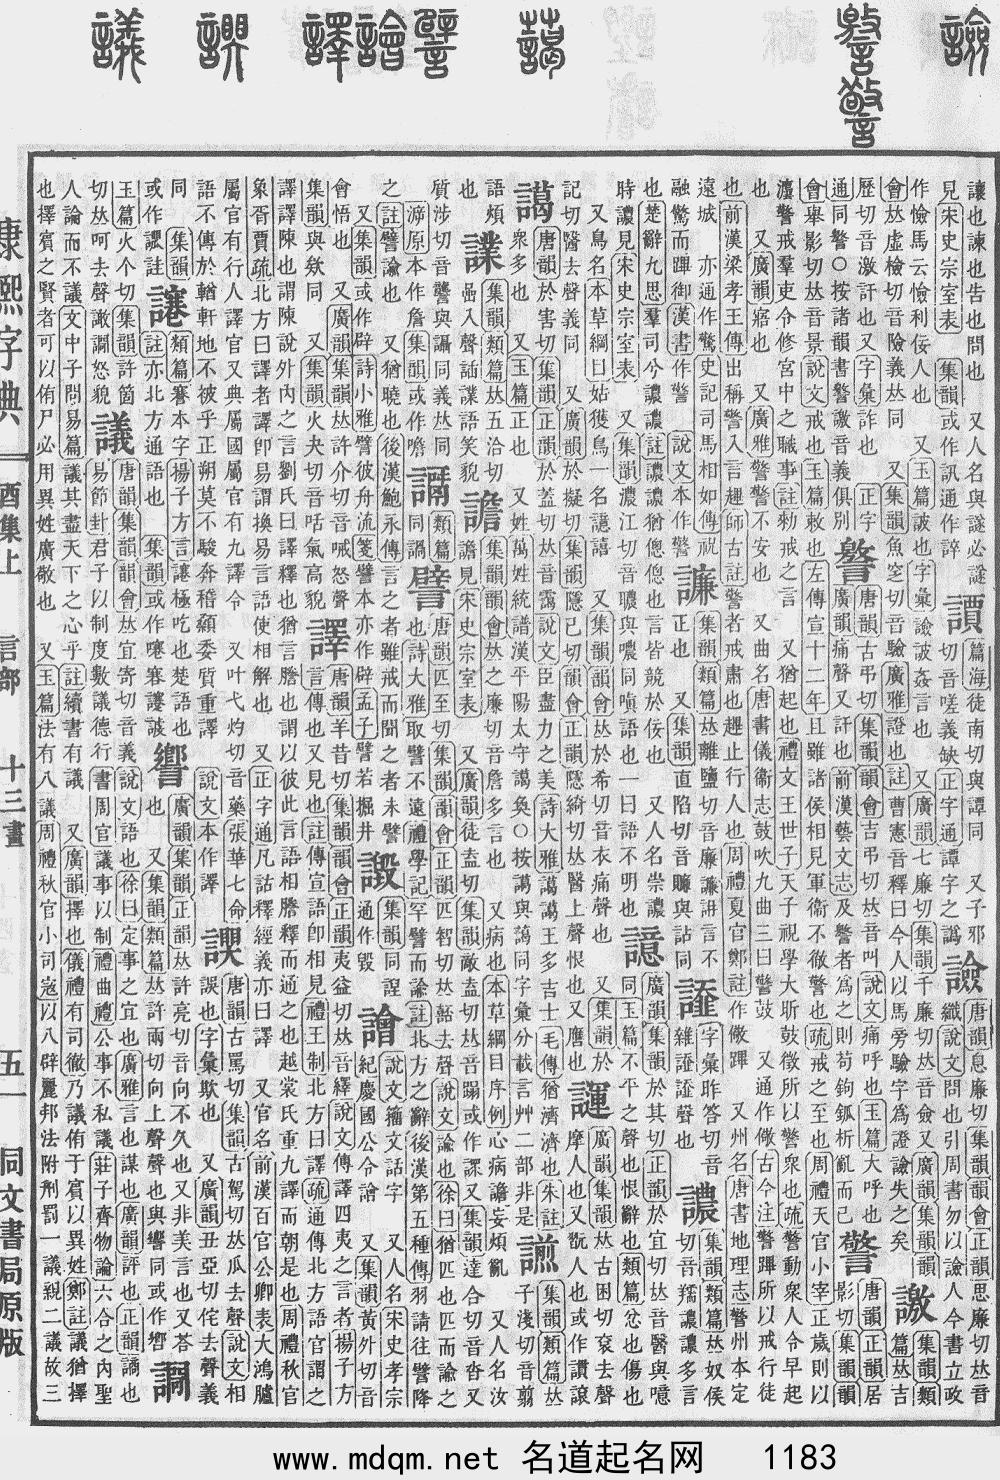 讓也諫也告也問也 又人名與𧫷必諡
見宋史宗室表 集韻或作訊通作誶
譚 篇海徒南切與譚同 又子邪
切音嗟義缺正字通譚字之譌
譣 唐韻息廉切集韻韻會正韻思廉切𠀤音
纖說文問也引周書勿以譣人今書立政
作憸馬云憸利佞人也 又玉篇詖也字彙譣詖姦言也 又廣韻七廉切集韻千廉切𠀤音僉又廣韻集韻
會𠀤虛檢切音險義𠀤同 又集韻魚窆切音驗廣雅證也註曹憲音釋曰今人以馬旁驗字爲證譣失之矣
譤 集韻類
篇𠀤吉
歷切音激訐也又字彙詐也 正字
通同警○按諸韻書警譤音義俱別
警 唐韻古弔切集韻韻會吉弔切𠀤音叫說文痛呼也玉篇大呼也
廣韻痛聲又訐也前漢藝文志及警者爲之則苟鉤鈲析亂而已
警 唐韻正韻居
影切集韻韻
會舉影切𠀤音景說文戒也玉篇敕也左傳宣十二年且雖諸侯相見軍衞不徹警也疏戒之至也周禮天官小宰正歲則以
灋警戒羣吏令修宮中之職事註勑戒之言 又猶起也禮文王世子天子視學大昕鼓徵所以警衆也疏警動衆人令早起
也 又廣韻寤也 又廣雅警警不安也 又曲名唐書儀衞志鼓吹九曲三曰警鼓 又通作儆古今注警蹕所以戒行徒
也前漢梁孝王傳出稱警入言趩師古註警者戒肅也趩止行人也周禮夏官鄭註作儆蹕 又州名唐書地理志警州本定
遠城 亦通作驚史記司馬相如傳祝
融驚而蹕御漢書作警 說文本作警
譧 集韻類篇𠀤離鹽切音廉譧謰言不
正也 又集韻直陷切音賺與詀同
䜅 字彙昨答切音
雜䜅䜅聲也
譨 集韻類篇𠀤奴侯
切音羺譨譨多言
也楚辭九思羣司兮譨譨註譨譨猶偬偬也言皆競於佞也 又人名崇譨
時譨見宋史宗室表 又集韻濃江切音膿與噥同嗔語也一曰語不明也
譩 廣韻集韻於其切正韻於宜切𠀤音醫與噫
同玉篇不平之聲也恨辭也類篇忿也傷也
又鳥名本草綱目姑獲鳥一名譩譆 又集韻韻會𠀤於希切音衣痛聲也 又集韻於
記切醫去聲義同 又廣韻於擬切集韻隱己切韻會正韻隱綺切𠀤醫上聲恨也又譍也
諢 廣韻集韻𠀤古困切袞去聲
摩人也又翫人也或作讃諼
譪 唐韻於害切集韻正韻於蓋切𠀤音靄說文臣盡力之美詩大雅譪譪王多吉士毛傳猶濟濟也朱註
衆多也 又玉篇正也 又姓萬姓統譜漢平陽太守譪奐○按譪與藹同字彙分載言艸二部非是
譾 集韻類篇𠀤
子淺切音翦
語煩
也
譟 集韻類篇𠀤五洽切
喦入聲誦譟語笑貌
譫 集韻韻會𠀤之廉切音詹多言也 又病也本草綱目序例心病譫妄煩亂 又人名汝
譫見宋史宗室表 又廣韻徒盍切集韻敵盍切𠀤音蹋或作譶又集韻達合切音沓又
質涉切音讋與讘同義𠀤同
謜原本作詹集韻或作噡
䛿 類篇
同謁
譬 唐韻匹至切集韻韻會正韻匹智切𠀤𧿽去聲說文諭也徐曰猶匹也匹而諭之
也詩大雅取譬不遠禮學記罕譬而論註北方之辭後漢第五種傳羽請往譬降
之註譬論也 又猶曉也後漢鮑永傳言之者雖戒而聞之者未譬
又集韻或作辟詩小雅譬彼舟流箋譬本亦作辟孟子譬若掘井
譭 集韻同
通作毀
譮 說文籀文話字 又人名宋史孝宗
紀慶國公令譮 又集韻黃外切音
會悟也 又廣韻集韻𠀤許介切音喊怒聲
集韻與欸同 又集韻火夬切音咶氣高貌
譯 唐韻羊昔切集韻韻會正韻夷益切𠀤音繹說文傳譯四夷之言者揚子方
言傳也又見也註傳宣語卽相見禮王制北方曰譯疏通傳北方語官謂之
譯譯陳也謂陳說外內之言劉氏曰譯釋也猶言謄也謂以彼此言語相謄釋而通之也越裳氏重九譯而朝是也周禮秋官
象胥賈疏北方曰譯者譯卽易謂換易言語使相解也 又正字通凡詁釋經義亦曰譯 又官名前漢百官公卿表大鴻臚
屬官有行人譯官又典屬國屬官有九譯令 又叶弋灼切音藥張華七命
語不傳於輶軒地不被乎正朔莫不駿奔稽顙委質重譯 說文本作譯
諆 唐韻古罵切集韻古駕切𠀤瓜去聲說文相
誤也字彙欺也 又廣韻丑亞切侘去聲義
同 集韻
或作諰註
譿 類篇謇本字揚子方言譿極吃也楚語也
註亦北方通語也 集韻或作𡫧謇𧭤諴
響 廣韻集韻正韻𠀤許亮切音向不久也又非美言也又荅
也 又集韻類篇𠀤許兩切向上聲聲也與響同或作嚮
𧬿 玉篇火个切集韻許箇
切𠀤呵去聲謝譋怒貌
議 唐韻集韻韻會𠀤宜寄切音義說文語也徐曰定事之宜也廣雅言也謀也廣韻評也正韻謫也
易節卦君子以制度數議德行書周官議事以制禮曲禮公事不私議莊子齊物論六合之內聖
人論而不議文中子問易篇議其盡天下之心乎註續書有議 又廣韻擇也儀禮有司徹乃議侑于賓以異姓鄭註議猶擇
也擇賓之賢者可以侑尸必用異姓廣敬也 又玉篇法有八議周禮秋官小司寇以八辟麗邦法附刑罰一議親二議故三
康熙字典 酉集上 言部 十三畫 五一 同文書局原版
www.mdqm.net 名道起名网 1183